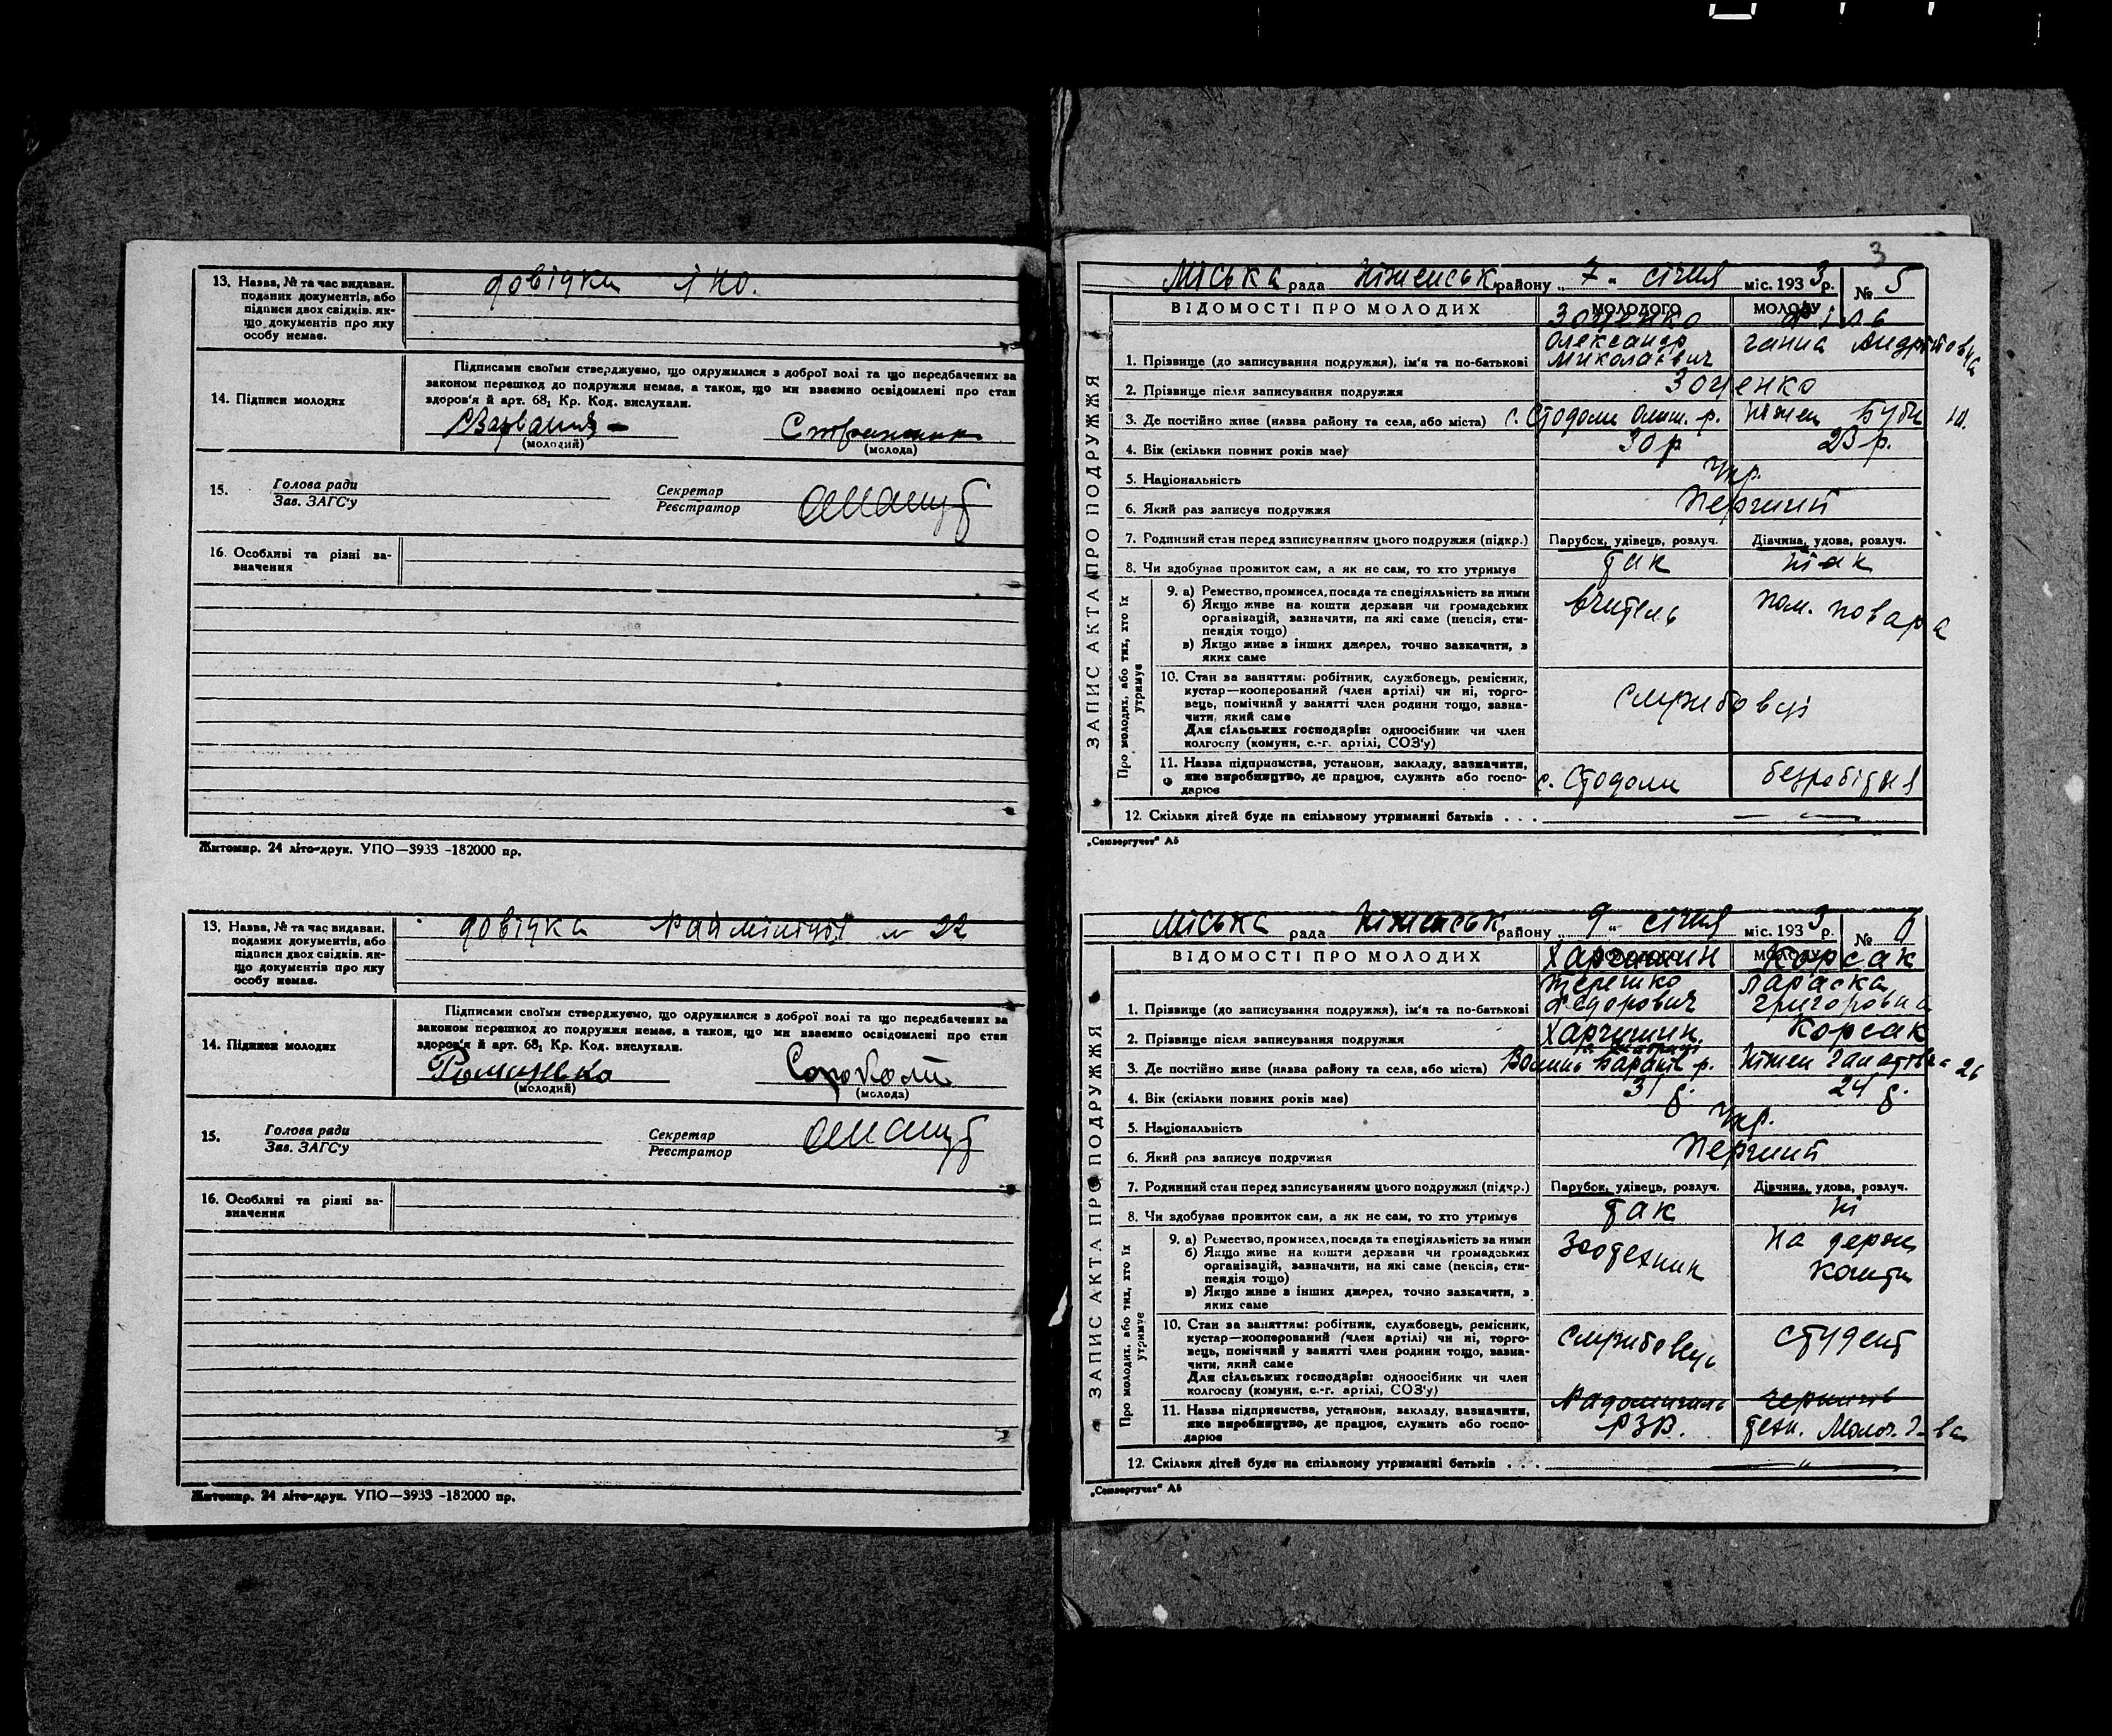 13. Назва, № та час видаван.
поданих документів, або
підписи двох свідків, як-
що документів про яку
особу немає.
довідки ІНО.
14. Підписи молодих
Підписами своїми стверджуємо, що одружилися з доброї волі та що передбачених за
законом перешкод до подружжя немає, а також, що ми взаємно освідомлені про стан
здоров'я й арт. 68₁ Кр. Код. вислухали.
(молодий)
(молода)
15.
Голова ради
Зав. ЗАГС'у
Секретар
Реєстратор
16. Особливі та різні за-
значення
Житомир. 24 літо-друк. УПО—3933 -182000 пр.
13. Назва, № та час видаван.
поданих документів, або
підписи двох свідків, як-
що документів про яку
особу немає.
довідка № 22
14. Підписи молодих
Підписами своїми стверджуємо, що одружилися з доброї волі та що передбачених за
законом перешкод до подружжя немає, а також, що ми взаємно освідомлені про стан
здоров'я й арт. 68₁ Кр. Код. вислухали.
(молодий)
(молода)
15.
Голова ради
Зав. ЗАГС'у
Секретар
Реєстратор
16. Особливі та різні за-
значення
Житомир. 24 літо-друк. УПО—3933 -182000 пр.
3
ЗАПИС АКТА ПРО ПОДРУЖЖЯ
Міська рада Ніженськ району „ 7 „ січня міс. 1933 р. № 5
ВІДОМОСТІ ПРО МОЛОДИХ
МОЛОДОГО
МОЛОДУ
1. Прізвище (до записування подружжя), ім'я та по-батькові
Зоценко
Олександр
Миколаевич
Ганна
2. Прізвище після записування подружжя
Зоценко
3. Де постійно живе (назва району та села, або міста)
с. Стодоли Олиш. р.
Ніжен
4. Вік (скільки повних років має)
30 р
23 р.
5. Національність
Укр.
6. Який раз записує подружжя
Перший
7. Родинний стан перед записуванням цього подружжя (підкр.)
Парубок, удівець, розлуч.
Дівчина, удова, розлуч.
8. Чи здобуває прожиток сам, а як не сам, то хто утримує
так
так
Про молодих, або тих, хто їх
утримує
9. а) Ремество, промисел, посада та спеціяльність за ними
б) Якщо живе на кошти держави чи громадських
організацій, зазначити, на які саме (пенсія, сти-
пендія тощо)
в) Якщо живе з інших джерел, точно зазначити, з
яких саме
вчитель
пом. повара
10. Стан за заняттям: робітник, службовець, ремісник,
кустар—кооперований (член артілі) чи ні, торго-
вець, помічний у занятті член родини тощо, зазна-
чити, який саме
Для сільських господарів: одноосібник чи член
колгоспу (комуни, с.-г. артілі, СОЗ'у)
службовці
11. Назва підприємства, установи, закладу, зазначити,
яке виробництво, де працює, служить або госпо-
дарює
с. Стодоли
безробітня
12. Скільки дітей буде на спільному утриманні батьків . . .
„Союзоргучет" А5
ЗАПИС АКТА ПРО ПОДРУЖЖЯ
Міська рада Ніженськ району „ 9 „ січня міс. 1933 р. № 6
ВІДОМОСТІ ПРО МОЛОДИХ
1. Прізвище (до записування подружжя), ім'я та по-батькові
Харчишин
Терешко
Федорович
Корсак
Параска
Григоровна
2. Прізвище після записування подружжя
Харчишин
Корсак
3. Де постійно живе (назва району та села, або міста)
Волинь р.
Ніжен 26
4. Вік (скільки повних років має)
31 р.
24 р.
5. Національність
Укр.
6. Який раз записує подружжя
Перший
7. Родинний стан перед записуванням цього подружжя (підкр.)
Парубок, удівець, розлуч.
Дівчина, удова, розлуч.
8. Чи здобуває прожиток сам, а як не сам, то хто утримує
так
ні
Про молодих, або тих, хто їх
утримує
9. а) Ремество, промисел, посада та спеціяльність за ними
б) Якщо живе на кошти держави чи громадських
організацій, зазначити, на які саме (пенсія, сти-
пендія тощо)
в) Якщо живе з інших джерел, точно зазначити, з
яких саме
Зоотехник
На держ
кошти
10. Стан за заняттям: робітник, службовець, ремісник,
кустар—кооперований (член артілі) чи ні, торго-
вець, помічний у занятті член родини тощо, зазна-
чити, який саме
Для сільських господарів: одноосібник чи член
колгоспу (комуни, с.-г. артілі, СОЗ'у)
службовець
студент
11. Назва підприємства, установи, закладу, зазначити,
яке виробництво, де працює, служить або госпо-
дарює
РЗВ.
техн. Молоч.
12. Скільки дітей буде на спільному утриманні батьків . . .
„Союзоргучет" А5